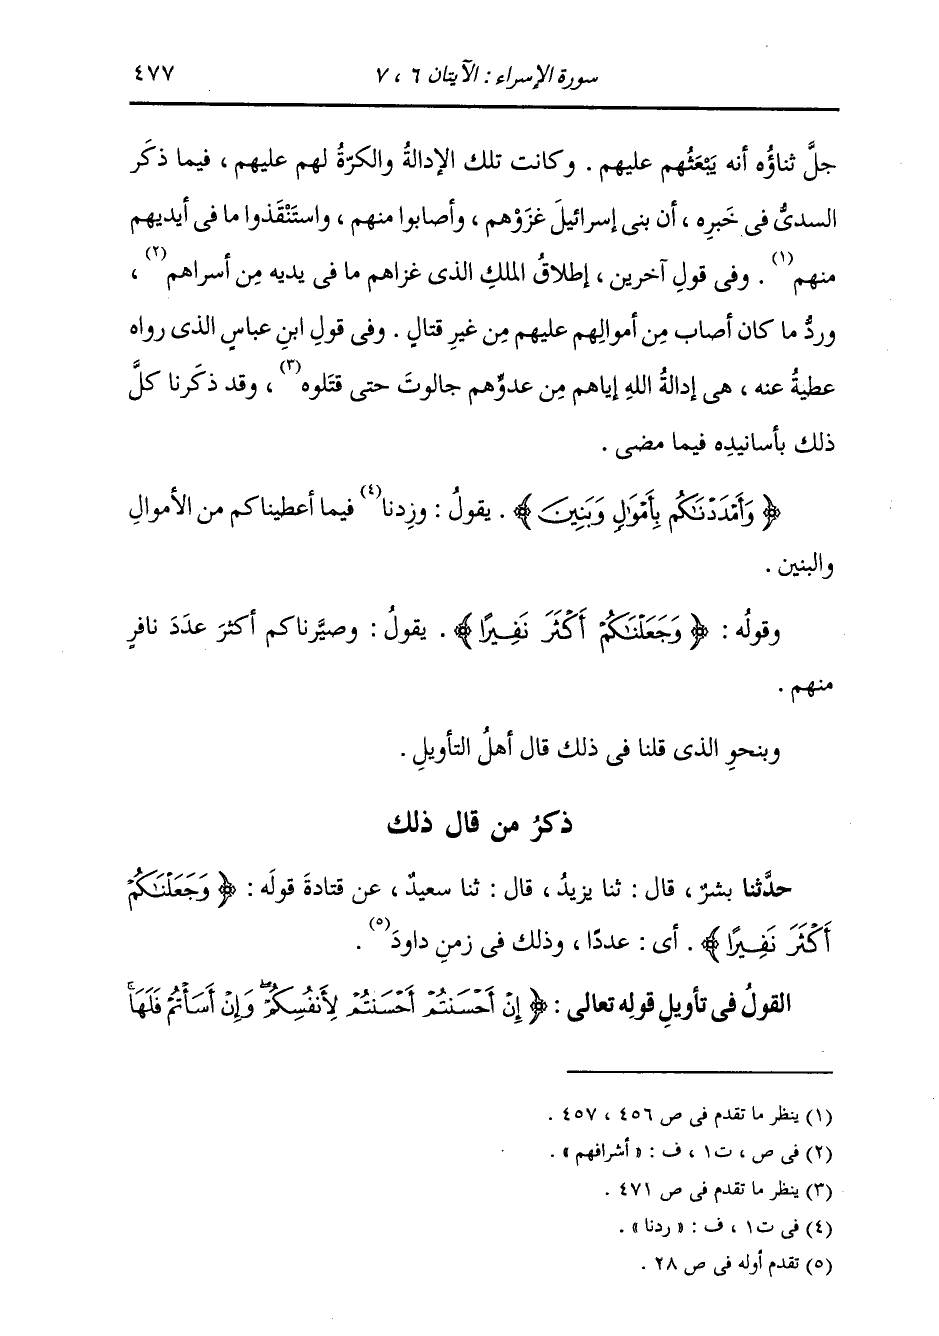 سورة الإسراء : الآيتان ٦ ، ٧
٤٧٧
جلَّ ثناؤُه أنه يَبْعَثُهم عليهم . وكانت تلك الإدالةُ والكرّةُ لهم عليهم ، فيما ذكَر
السدىُّ فى خَبرِه ، أن بنى إسرائيلَ غزَوْهم ، وأصابوا منهم ، واستَنْقَذوا ما فى أيديهم
منهم(١) . وفى قولِ آخرين ، إطلاقُ الملكِ الذى غزاهم ما فى يديه مِن أسراهم(٢) ،
وردُّ ما كان أصاب مِن أموالِهم عليهم مِن غيرِ قتالٍ . وفى قولِ ابنِ عباسٍ الذى رواه
عطيةُ عنه ، هى إدالةُ اللهِ إياهم مِن عدوِّهم جالوتَ حتى قتَلوه(٣) ، وقد ذكَرنا كلَّ
ذلك بأسانيدِه فيما مضى .
﴿ وَأَمْدَدْنَٰكُم بِأَمْوَٰلٍ وَبَنِينَ ﴾ . يقولُ : وزِدنا(٤) فيما أعطيناكم من الأموالِ
والبنين .
وقولُه : ﴿ وَجَعَلْنَٰكُمْ أَكْثَرَ نَفِيرًا ﴾ . يقولُ : وصيَّرناكم أكثرَ عدَدَ نافرٍ
منهم .
وبنحوِ الذى قلنا فى ذلك قال أهلُ التأويلِ .
ذكرُ من قال ذلك
حدَّثنا بشرٌ ، قال : ثنا يزيدُ ، قال : ثنا سعيدٌ ، عن قتادةَ قولَه : ﴿ وَجَعَلْنَٰكُمْ
أَكْثَرَ نَفِيرًا ﴾ . أى : عددًا ، وذلك فى زمنِ داودَ(٥) .
القولُ فى تأويلِ قولِه تعالى : ﴿ إِنْ أَحْسَنتُمْ أَحْسَنتُمْ لِأَنفُسِكُمْ ۖ وَإِنْ أَسَأْتُمْ فَلَهَا ۚ
(١) ينظر ما تقدم فى ص ٤٥٦ ، ٤٥٧ .
(٢) فى ص ، ت١ ، ف : « أشرافهم » .
(٣) ينظر ما تقدم فى ص ٤٧١ .
(٤) فى ت١ ، ف : « ردنا » .
(٥) تقدم أوله فى ص ٢٨ .